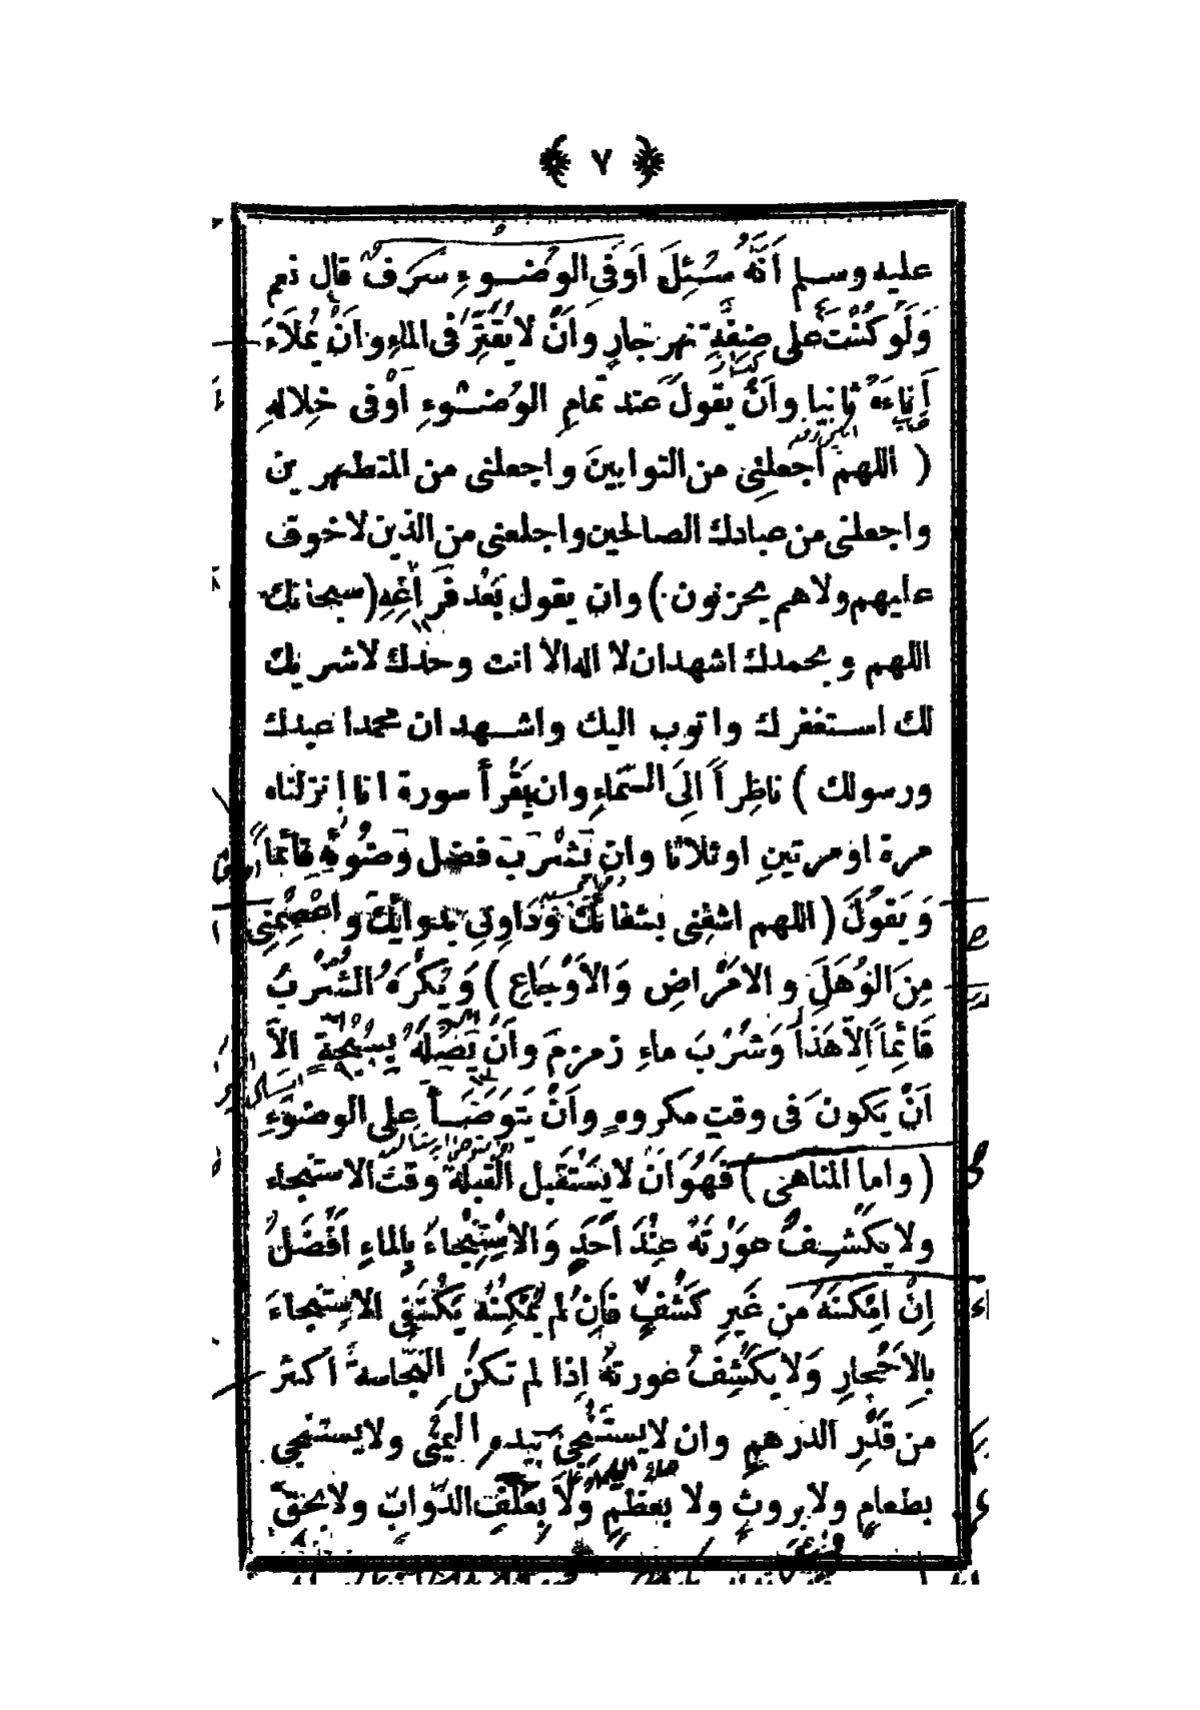 ﴿ ٧ ﴾
عليه وسلم أَنَّهُ سُئِلَ اَوَفِى الوُضوءِ سَرَفٌ قال نعم
وَلَو كُنْتَ على ضِفَّةِ نهر جارٍ وَاَنْ لا يُقَتِّرَ فى الماءِ واَنْ يَملَاءَ
أِنَاءَهُ ثانيا واَنْ يقولَ عند تمامِ الوُضوءِ اَوْفى خِلالِهِ
( اللهم اجعلنِى من التوابينَ واجعلنى من المتطهرين
واجعلنى من عبادك الصالحين واجلعنى من الذين لاخوف
عليهم ولاهم يحزنون ) وان يقول بَعْد فَرَاغِهِ (سبحانك
اللهم وبحمدك اشهدان لا اله الا انت وحدك لاشريك
لك استغفرك واتوب اليك واشهد ان محمدا عبدك
ورسولك ) ناظِراً اِلَى السَّمَاءِ وان يَقْرأَ سورة انا انزلناه
مرة اومرتينِ اوثلاثا وان يَشْرَبَ فضل وَضُوئِهِ قائماً
وَيَقولَ (اللهم اشفِنى بشفائكَ وَدَاوِنِى بدوائِكَ واعْصِمْنِى
مِنَ الوُهَلَ والامْرَاضِ وَالاَوْجَاعِ ) وَيُكْرَهُ الشُّرْبُ
قَائِماً اِلاّ هَذا وَشُرْبَ ماءِ زمزمَ واَنْ يَصِلَهُ بِسُبْحَةٍ الاّ
اَنْ يَكونَ فى وقتٍ مكروهٍ واَنْ يَتَوَضَأَ على الوضوءِ
( واما المناهى ) فَهُوَانَ لايَسْتَقبل القِبلَةَ وقتَ الاستنجاء
ولا يكْشِفُ عَوْرَتَهُ عِنْدَ اَحَدٍ وَالاِسْتِنْجاءُ بِالماءِ اَفْضَلُ
اِنْ امْكَنَهُ من غَيرِ كَشْفٍ فاَنِ لم يُمْكِنْهُ يَكْتَفِى الاِستنجاءَ
بِالاَحْجارِ وَلا يَكْشِفُ عورتهُ اِذا لم تكن النَّجاسةُ اكثر
من قَدْرِ الدرهمِ وان لايستَنْجِىَ بيدهِ اليمْنى ولايستنجى
بطعامٍ ولا بروثٍ ولا بعظمٍ وَلا بِعَلَفِ الدَّوابّ ولا بحقّ